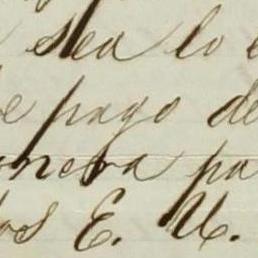 sea lo
e pago de
nera pa
los E. U.